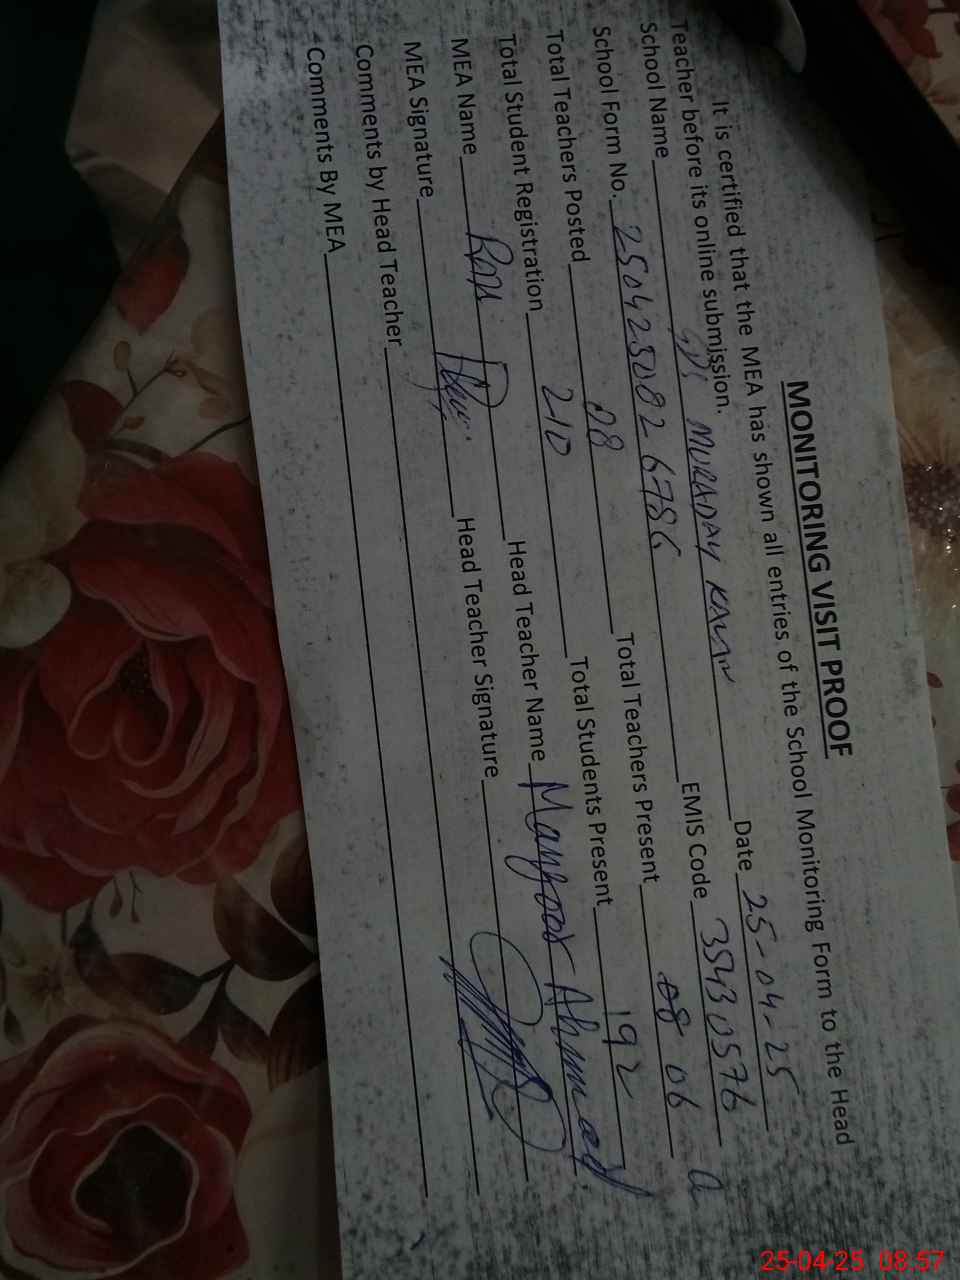 MONITORING VISIT PROOF
It is certified that the MEA has shown all entries of the School Monitoring Form to the Head
Teacher before its online submission.
School Name MURADAY KALAN Date 25-04-25
School Form No. 250425082 6786 EMIS Code 35430576
Total Teachers Posted 08 Total Teachers Present 08 06
Total Student Registration 210 Total Students Present 192
MEA Name Head Teacher Name Manzoor Ahmad
MEA Signature Head Teacher Signature
Comments by Head Teacher
Comments By MEA
25-04-25 08:57